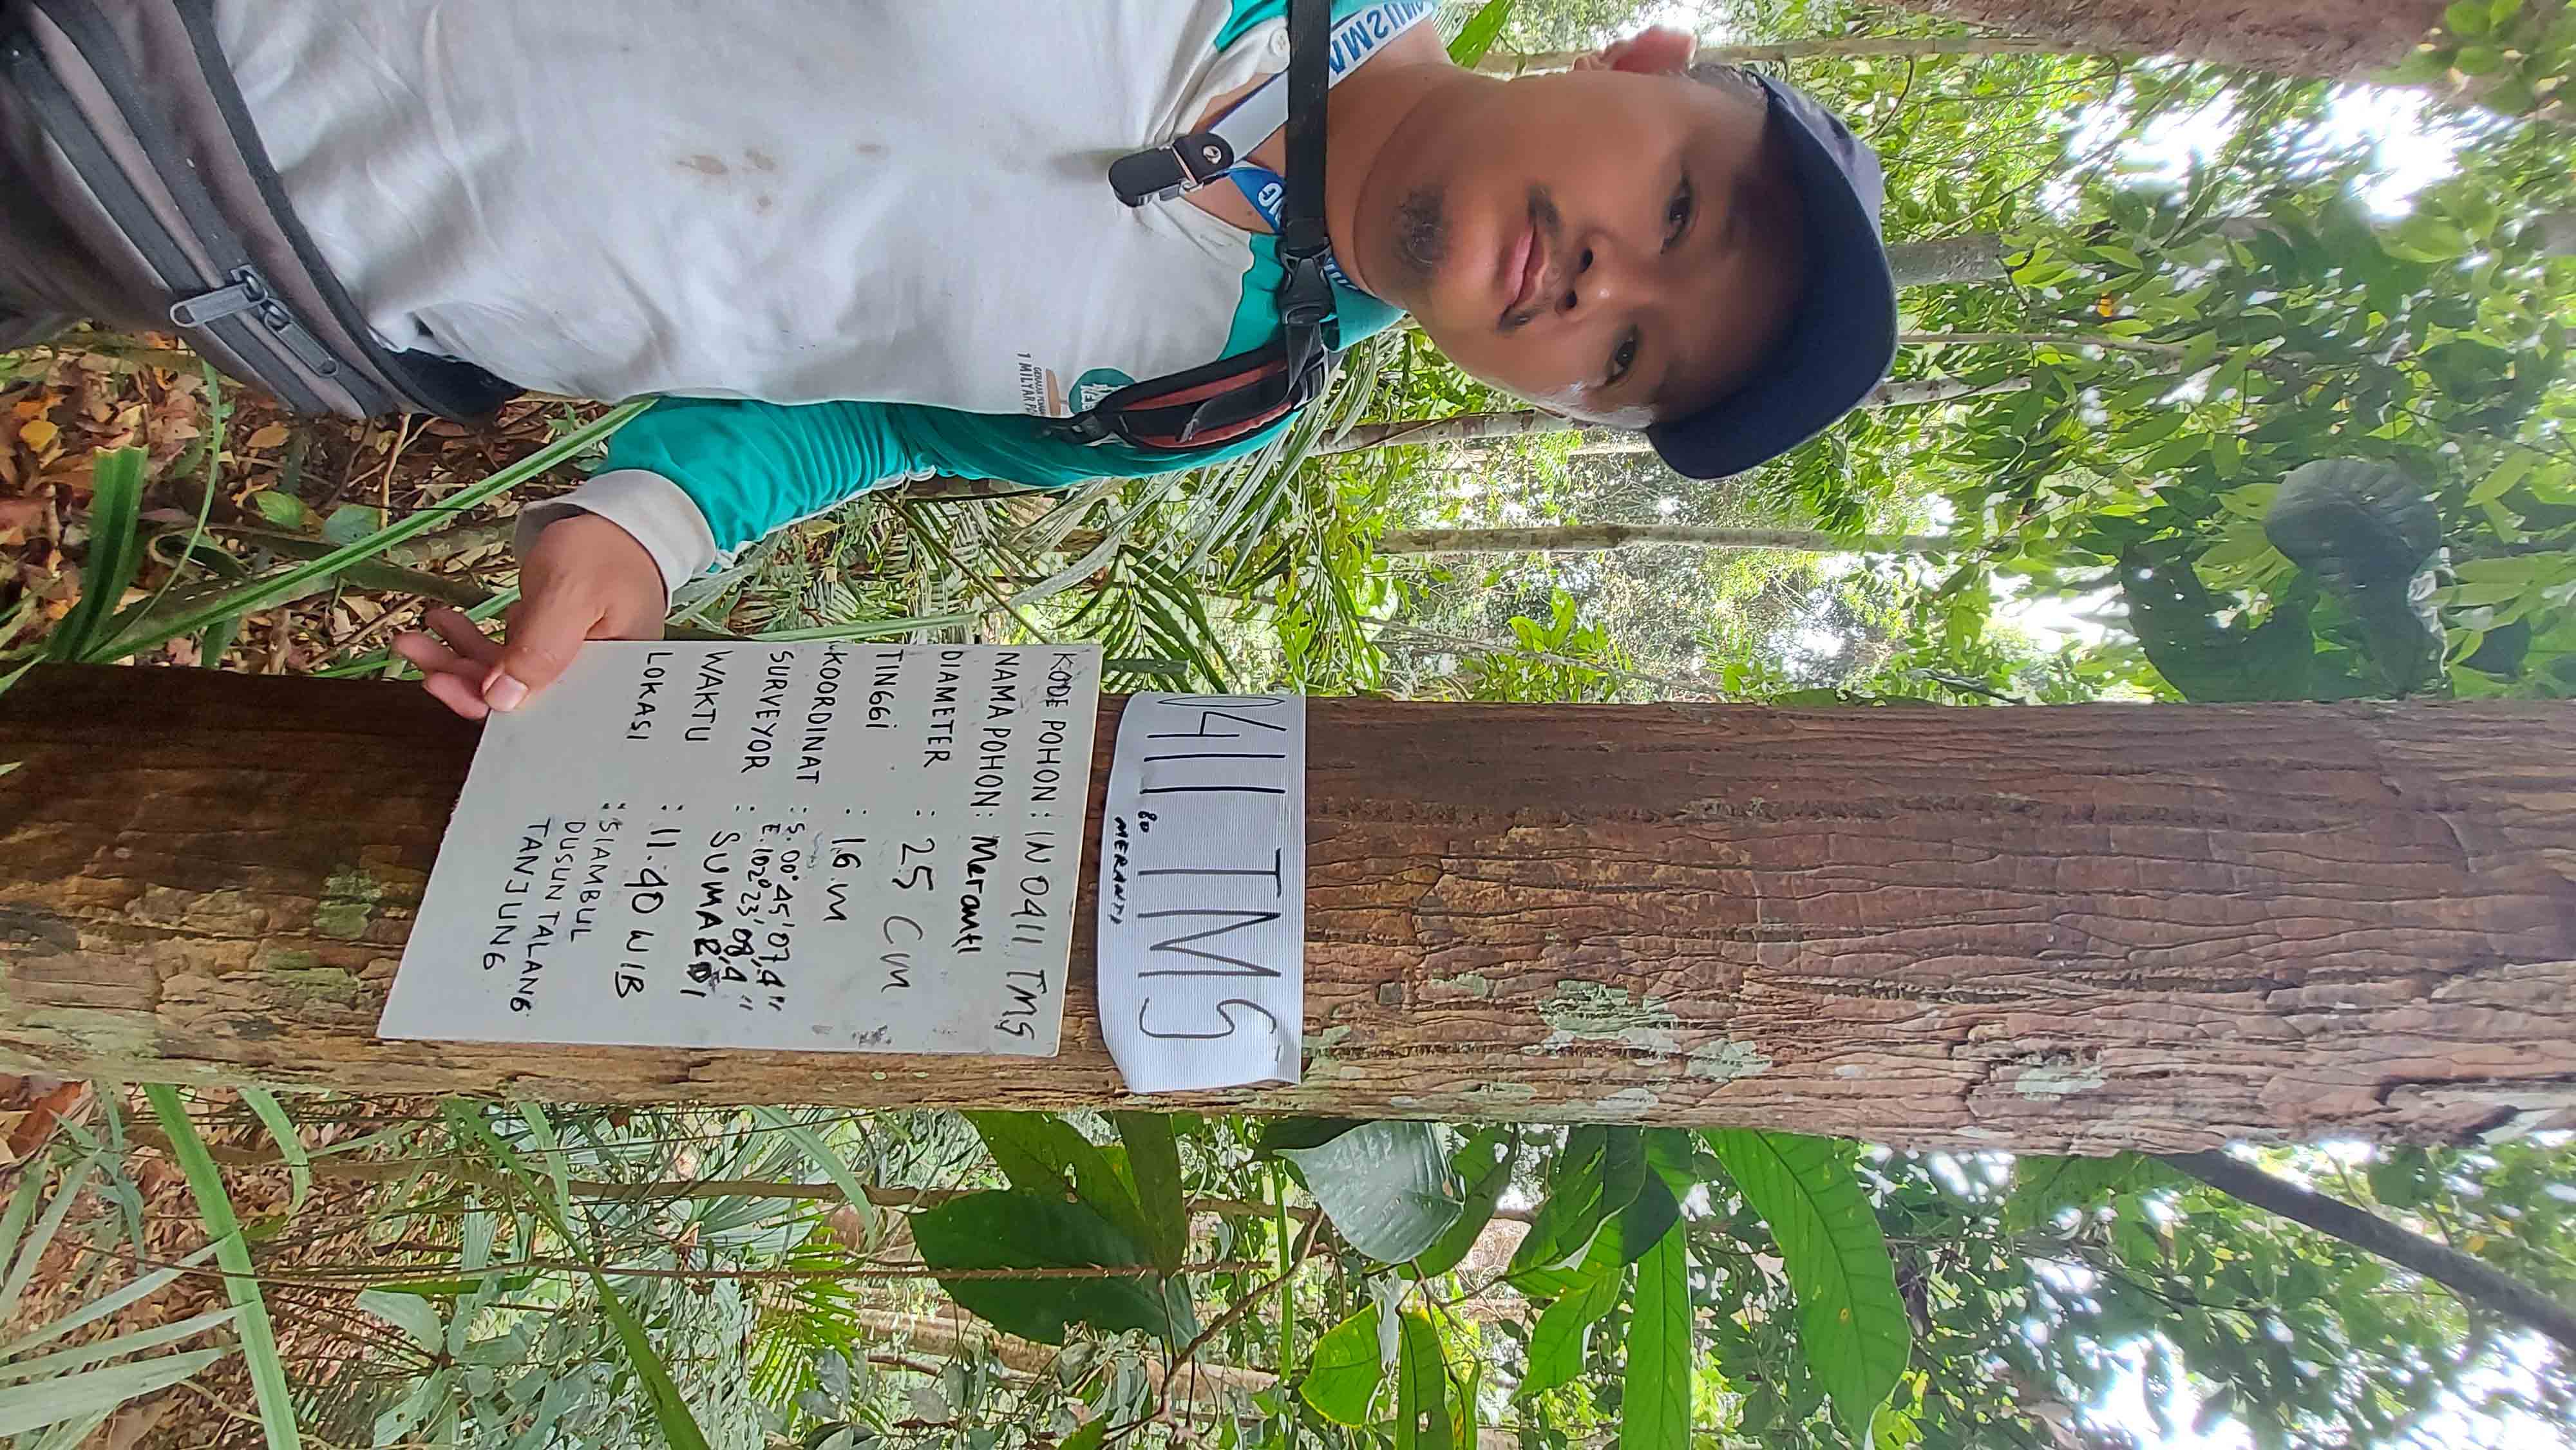 0411 TMS
80
MERANTI
KODE POHON : IN 0411 TMS
NAMA POHON : Meranti
DIAMETER : 25 Cm
TINGGI : 16 m
KOORDINAT : S. 00° 45' 07,4"
E. 102° 23' 08,4"
SURVEYOR : SUMARDI
WAKTU : 11.40 WIB
LOKASI : SIAMBUL
DUSUN TALANG
TANJUNG
GERAKAN
1 MILYAR